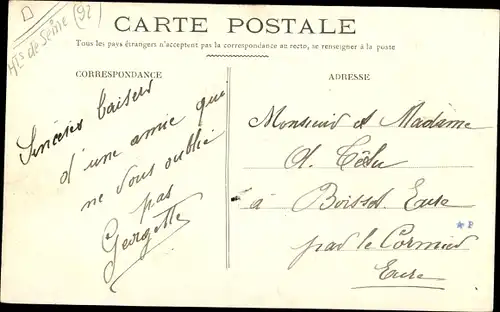 Hts de Seine (92)
CARTE POSTALE
Tous les pays étrangers n'acceptent pas la correspondance au recto, se renseigner à la poste
CORRESPONDANCE
Sincères baisers
d'une amie qui
ne vous oublie
pas
Georgette
ADRESSE
Monsieur et Madame
à Boisset Eure
par le Cormier
Eure
* P